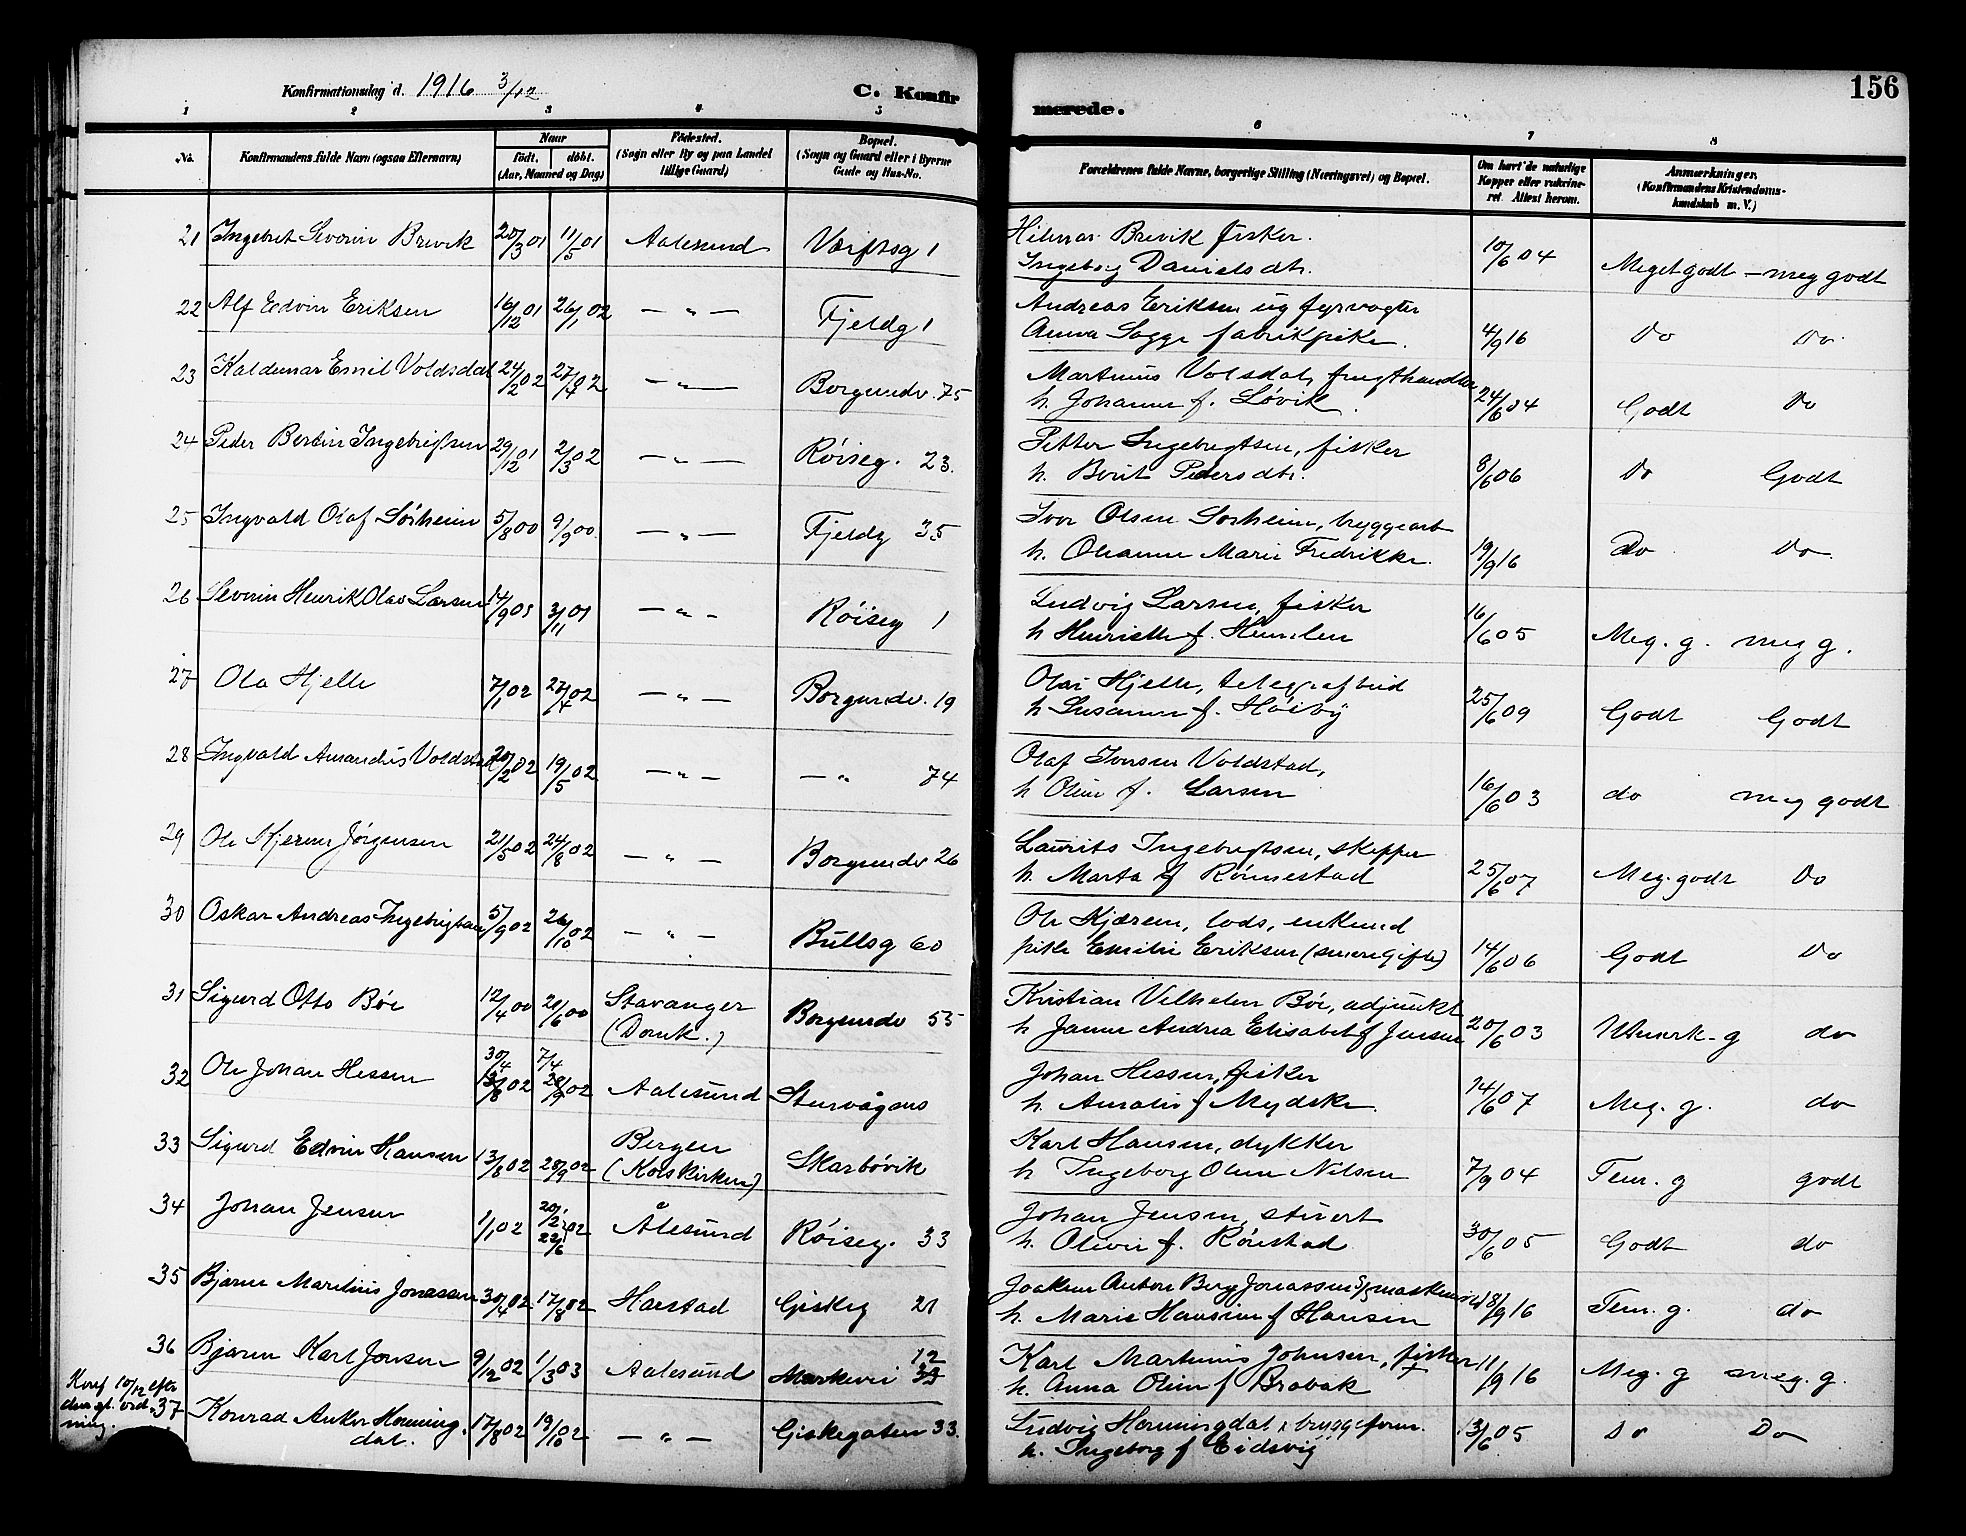 156
Konfirmationsdag d. 1916 3/12
C. Konfirmerede.
1 2 3 4 5 6 7 8
No. Konfirmandens fulde Navn (ogsaa Efternavn) Naar født. døbt. (Aar, Maaned og Dag) Fødested. (Sogn eller By og paa Landet tillige Gaard) Bopæl. (Sogn og Gaard eller i Byerne Gade og Hus-No. Forældrenes fulde Navne, borgerlige Stilling (Næringsvei) og Bopæl. Om havt de naturlige Kopper eller vakcineret Attest herom. Anmærkninger. (Konfirmandens Kristendomskundskab m. V.)
21 Ingebret Severin Brevik 20/3 01 11/5 01 Aalesund Værftsg 1 Hilmar Brevik fisker. 10/6 04 Meget godt - meg godt
Ingeborg Danielsdtr.
22 Alf Edvin Eriksen 16/12 01 26/1 02 — " — Fjeldg 1 Andreas Eriksen ug fyrvogter 4/9 16 Do Do
Anna Sogge fabrikpike.
23 Kaldemar Emil Voldsdal 24/2 02 27/4 02 — " — Borgundv. 75 Martinius Volsdal, frugthandler 24/6 04 Godt Do
h. Johanne f. Løvik.
24 Peder Bertin Ingebrigtsen 29/12 01 2/3 02 — " — Røiseg. 23. Petter Ingebrigtsen, fisker 8/6 06 Do Godt
h. Berit Pedersdtr.
25 Ingvald Olaf Sørheim 5/8 00 9/9 00. — " — Fjeldg 35 Ivar Olsen Sørheim, bryggearb 19/9 16 Do Do
h. Oleanne Marie Fredrikke.
26 Severin Henrik Olav Larsen 14/9 01 3/11 01 — " — Røiseg 1 Ludvig Larsen, fisker 16/6 05 Meg. g. meg g.
h Henriette f.
27 Ola Hjelle 7/1 02 27/4 02 — " — Borgundv. 19 Olai Hjelle, telegrafbud 25/6 09 Godt Godt
h Susanne f. Høiby
28 Ingvald Amandus Voldstad 20/2 02 19/5 02 — " — — " 74 Olaf Ivarsen Voldstad, 16/6 03 do meg godt
h Oline f. Larsen
29 Ole Kjerem Jørgensen 21/5 02 24/8 02 — " — Borgundv 26 Laurits Ingebrigtsen, skipper 25/6 07 Meg. godt Do
h. Marta f Rønnestad
30 Oskar Andreas Ingebrigtsen 5/9 02 26/10 02 — " — Bullsg 60 Ole Kjærem, lods, enkemd 14/6 06 Godt Do
pike Emilie Eriksen (senere gifte)
31 Sigurd Otto Bøe 12/4 00 21/6 00 Stavanger Borgundv 55 Kristian Vilhelm Bøe, adjunkt 20/6 03 Utmerk. g do
(Domk.) h Janna Andrea Elisabet f Jensen
32 Ole Johan Hessen 30/4 7/4 Aalesund Steinvågnes Johan Hessen, fisker 14/6 07 Meg. g. do
13/8 02 28/9 02 h. Amalie f Mydske.
33 Sigurd Edvin Hansen 13/8 02 28/9 02 Bergen Skarbøvik Karl Hansen, dykker 7/9 04 Tem. g godt
(Korskirken) h Ingeborg Oline Nilsen
34 Johan Jensen 1/1 02 20/12 02 Ålesund Røiseg. 33 Johan Jensen, stuert 30/6 05 Godt do
22/6 h. Olivie f. Rønstad
35 Bjarne Marelius Jonassen 30/4 02 17/8 02 Harstad Giskeg 21 Joakim Anton Berg Jonassen 18/9 16 Tem. g. do
h. Marie Hansine f Hansen
36 Bjarne Karl Jonsen 9/12 02 1/3 03 Aalesund Markvei 12 Karl Martinus Johnsen, fisker 11/9 16 Meg. g meg. g.
h. Anna Oline f Brobak
Konf. 10/12 efter
den gl. ordning.
37 Konrad Anker Henningdal. 17/8 02 19/10 02 — " — Giskegaten 33. Ludvig Henningdal, bryggeform. 13/6 05 Do Do
h. Ingeborg f Eidsvig